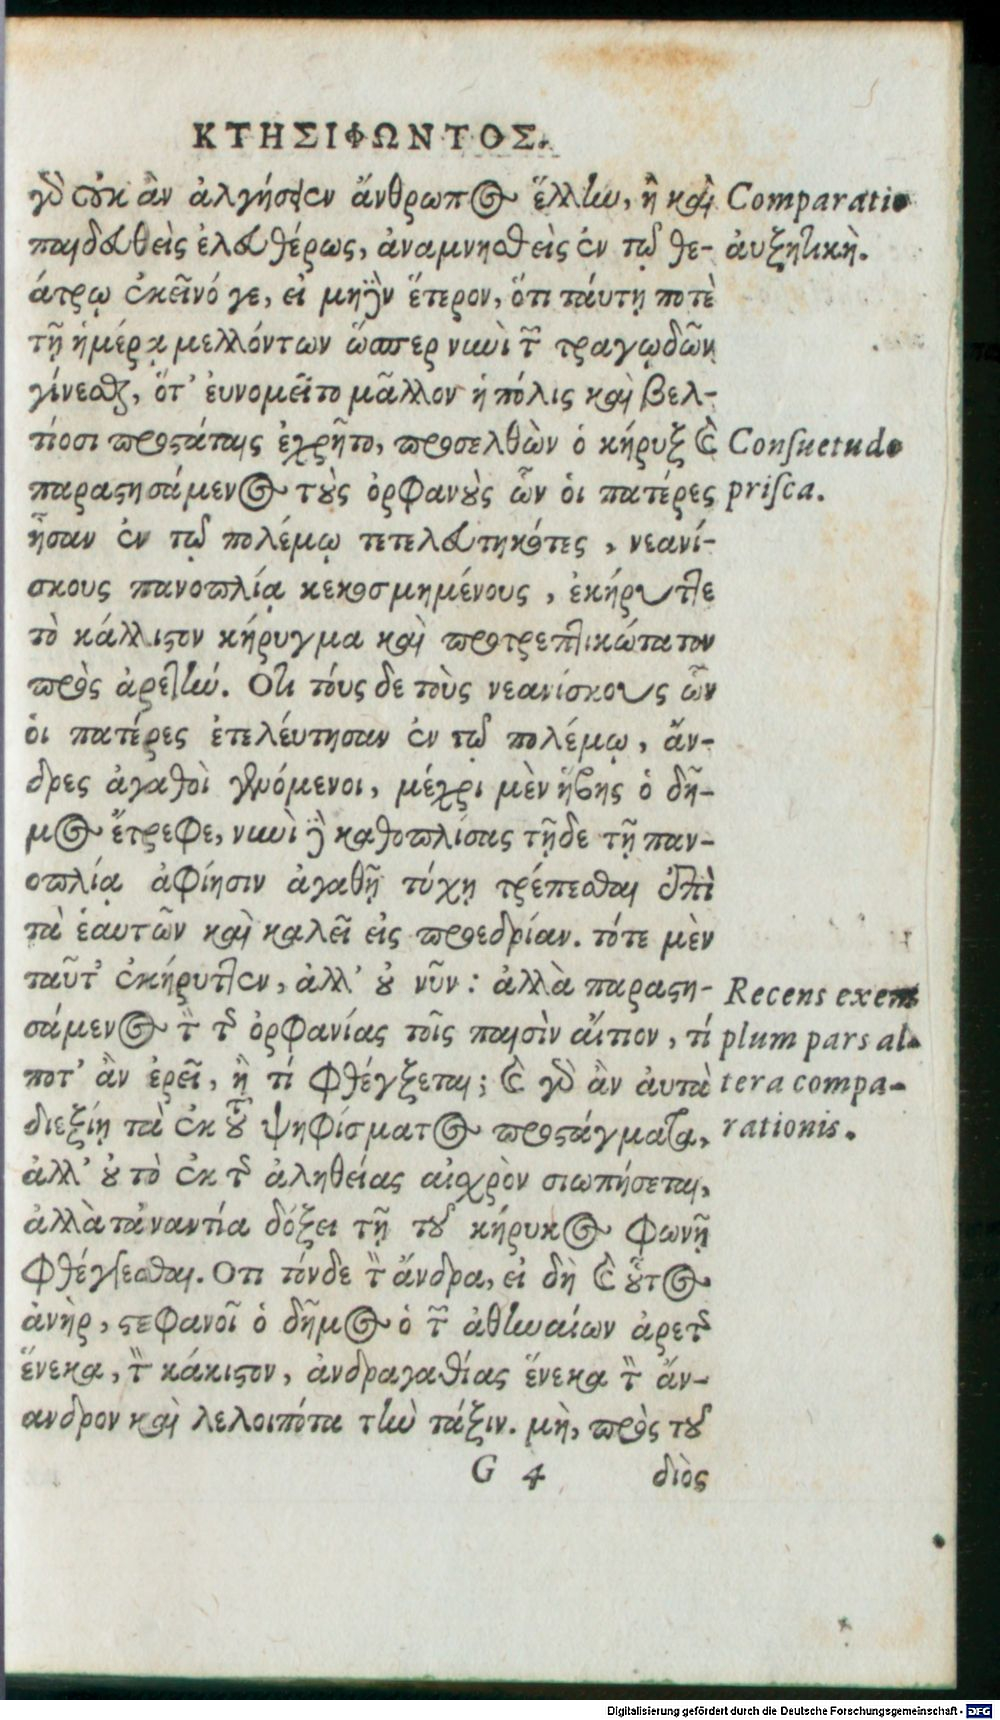 ΚΤΗΣΙΦΩΝΤΟΣ.
γὰρ οὐκ ἂν ἀλγήσειεν ἄνθρωπος ἕλλην, ἢ καὶ
παιδευθεὶς ἐλευθέρως, ἀναμνησθεὶς ἐν τῷ θε-
άτρῳ ἐκεῖνό γε, εἰ μηδὲν ἕτερον, ὅτι ταύτῃ ποτὲ
τῇ ἡμέρᾳ μελλόντων ὥσπερ νυνὶ τῶν τραγῳδῶν
γίνεσθαι, ὅτ' ἐυνομεῖτο μᾶλλον ἡ πόλις καὶ βελ-
τίοσι προστάταις ἐχρῆτο, προσελθὼν ὁ κήρυξ καὶ
παραστησάμενος τοὺς ὀρφανοὺς ὧν ὁι πατέρες
ἦσαν ἐν τῷ πολέμῳ τετελευτηκότες, νεανί-
σκους πανοπλίᾳ κεκοσμημένους, ἐκήρυττε
τὸ κάλλιστον κήρυγμα καὶ προτρεπτικώτατον
πρὸς ἀρετήν. Οτι τούς δε τοὺς νεανίσκους ὧν
ὁι πατέρες ἐτελέυτησαν ἐν τῷ πολέμῳ, ἄν-
δρες ἀγαθοὶ γενόμενοι, μέχρι μὲν ἥβης ὁ δῆ-
μος ἔτρεφε, νυνὶ δὲ καθοπλίσας τῇδε τῇ παν-
οπλίᾳ ἀφίησιν ἀγαθῇ τύχῃ τρέπεσθαι ἐπὶ
τὰ ἑαυτῶν καὶ καλεῖ εἰς προεδρίαν. τότε μὲν
ταῦτ' ἐκήρυττεν, ἀλλ' οὐ νῦν: ἀλλὰ παραστη-
σάμενος τὸν τῆς ὀρφανίας τοῖς παισὶν αἴτιον, τί
ποτ' ἂν ἐρεῖ, ἢ τί φθέγξεται; καὶ γὰρ ἂν ἀυτὰ
διεξίῃ τὰ ἐκ τοῦ ψηφίσματος προστάγματα,
ἀλλ' οὐ τὸ ἐκ τῆς ἀληθείας αἰσχρὸν σιωπήσεται,
ἀλλὰ τἀναντία δόξει τῇ τοῦ κήρυκος φωνῇ
φθέγγεσθαι. Οτι τόνδε τὸν ἄνδρα, εἰ δὴ καὶ οὗτος
ἀνὴρ, στεφανοῖ ὁ δῆμος ὁ τῶν ἀθηναίων ἀρετῆς
ἕνεκα, τὸν κάκιστον, ἀνδραγαθίας ἕνεκα τὸν ἄν-
ανδρον καὶ λελοιπότα τὴν τάξιν. μὴ, πρὸς τοῦ
G 4 διὸς
Comparatio
ἀυξητικὴ.
Consuetudo
prisca.
Recens exem
plum pars al-
tera compa-
rationis.
Digitalisierung gefördert durch die Deutsche Forschungsgemeinschaft - DFG